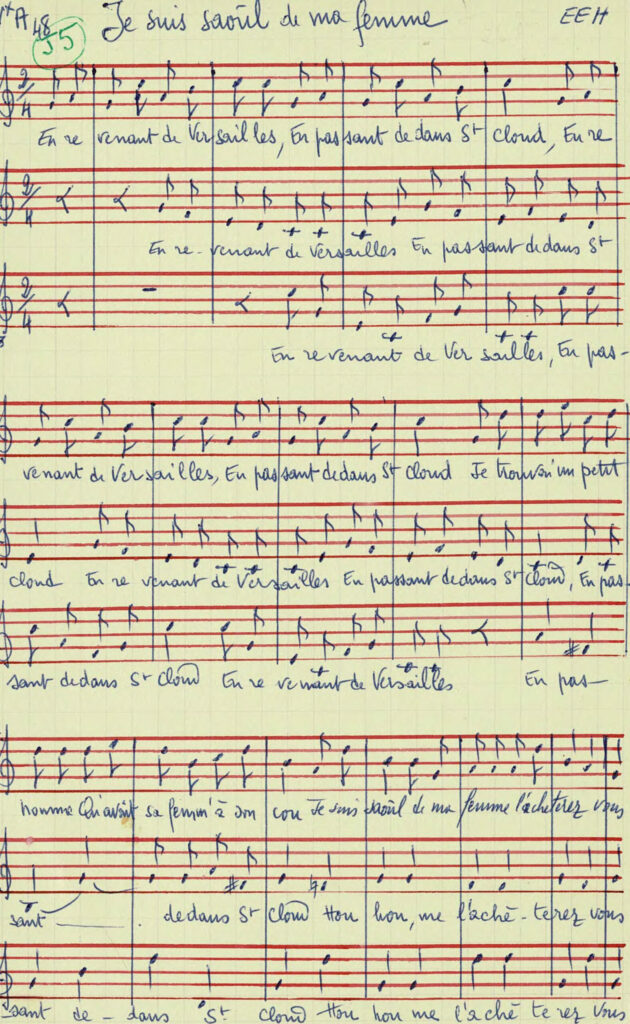 1*A 48 Je suis saoûl de ma femme EEH
55
2/4
En re venant de Versailles, En passant dedans St Cloud, En re
2/4
En re-venant de Versailles En passant dedans St
2/4
8
En revenant de Ver sailles, En pas-
venant de Versailles, En passant dedans St Cloud Je trouvai un petit
cloud En re venant de Versailles En passant dedans St Cloud, En pas-
sant dedans St Cloud En re venant de Versailles En pas—
homme Qu'avait sa femm' à son cou Je suis saoûl de ma femme l'achèterez vous
sant — . dedans St Cloud Hou hou, me l'achè-terez vous
sant de-dans St. cloud Hou hou me l'achè te rez vous